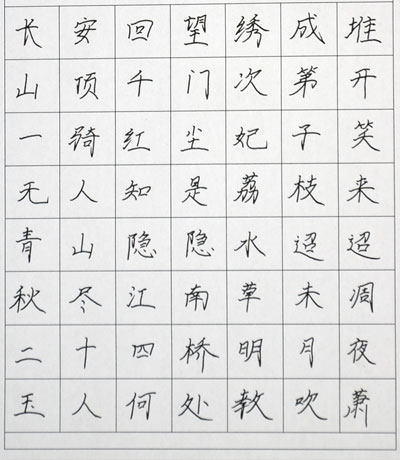 长安回望绣成堆
山顶千门次第开
一骑红尘妃子笑
无人知是荔枝来
青山隐隐水迢迢
秋尽江南草未凋
二十四桥明月夜
玉人何处教吹萧